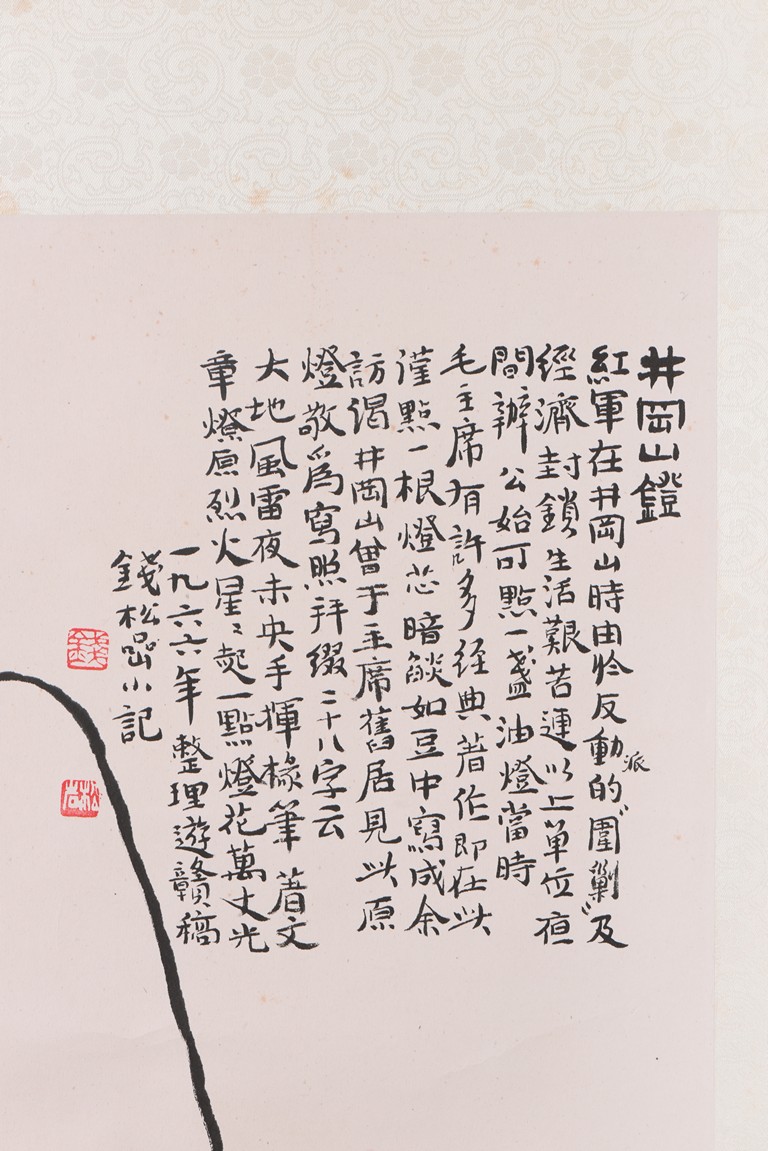 井岡山鐙
紅軍在井岡山時由於反動派的〝圍剿〞及
經濟封鎖生活艱苦連以上單位夜
間辦公始可點一盞油燈當時
毛主席有許多經典著作即在此
僅點一根燈芯暗燄如豆中寫成余
訪謁井岡山曾于主席舊居見此原
燈敬爲寫照拜綴二十八字云
大地風雷夜未央手揮椽筆著文
章燎原烈火星〻起一點燈花萬丈光
一九六六年整理遊贛稿
錢松嵒小記
錢
松嵒